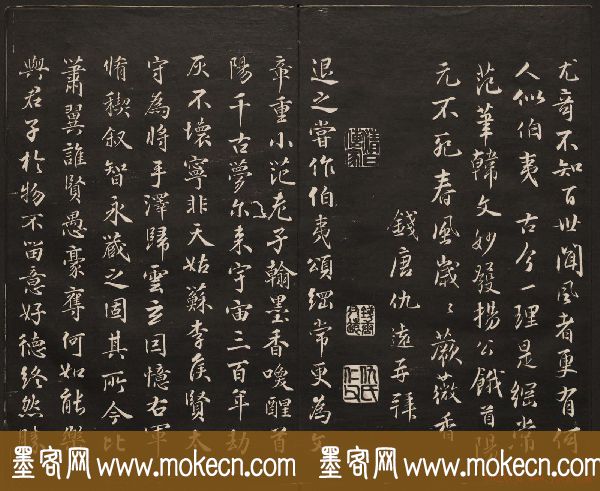 尤奇不知百世聞風者更有何
人似伯夷 古今一理是綱常
范筆韓文妙發揚公餓首陽
元不死春風歲〻蕨薇香
錢唐仇遠再拜
仇氏仁父
退之嘗作伯夷頌綱常更為文
章重小范老子翰墨香喚醒首
陽千古夢尔来宇宙三百年劫
灰不壞寧非天姑蘇李侯賢太
守為將手澤歸雲玄因憶右軍
脩禊叙智永藏之固其所今比
蕭翼誰賢愚豪奪何如能樂
與君子於物不留意好德終然勝
墨客网 www.mokecn.com 墨客网 www.mokecn.com